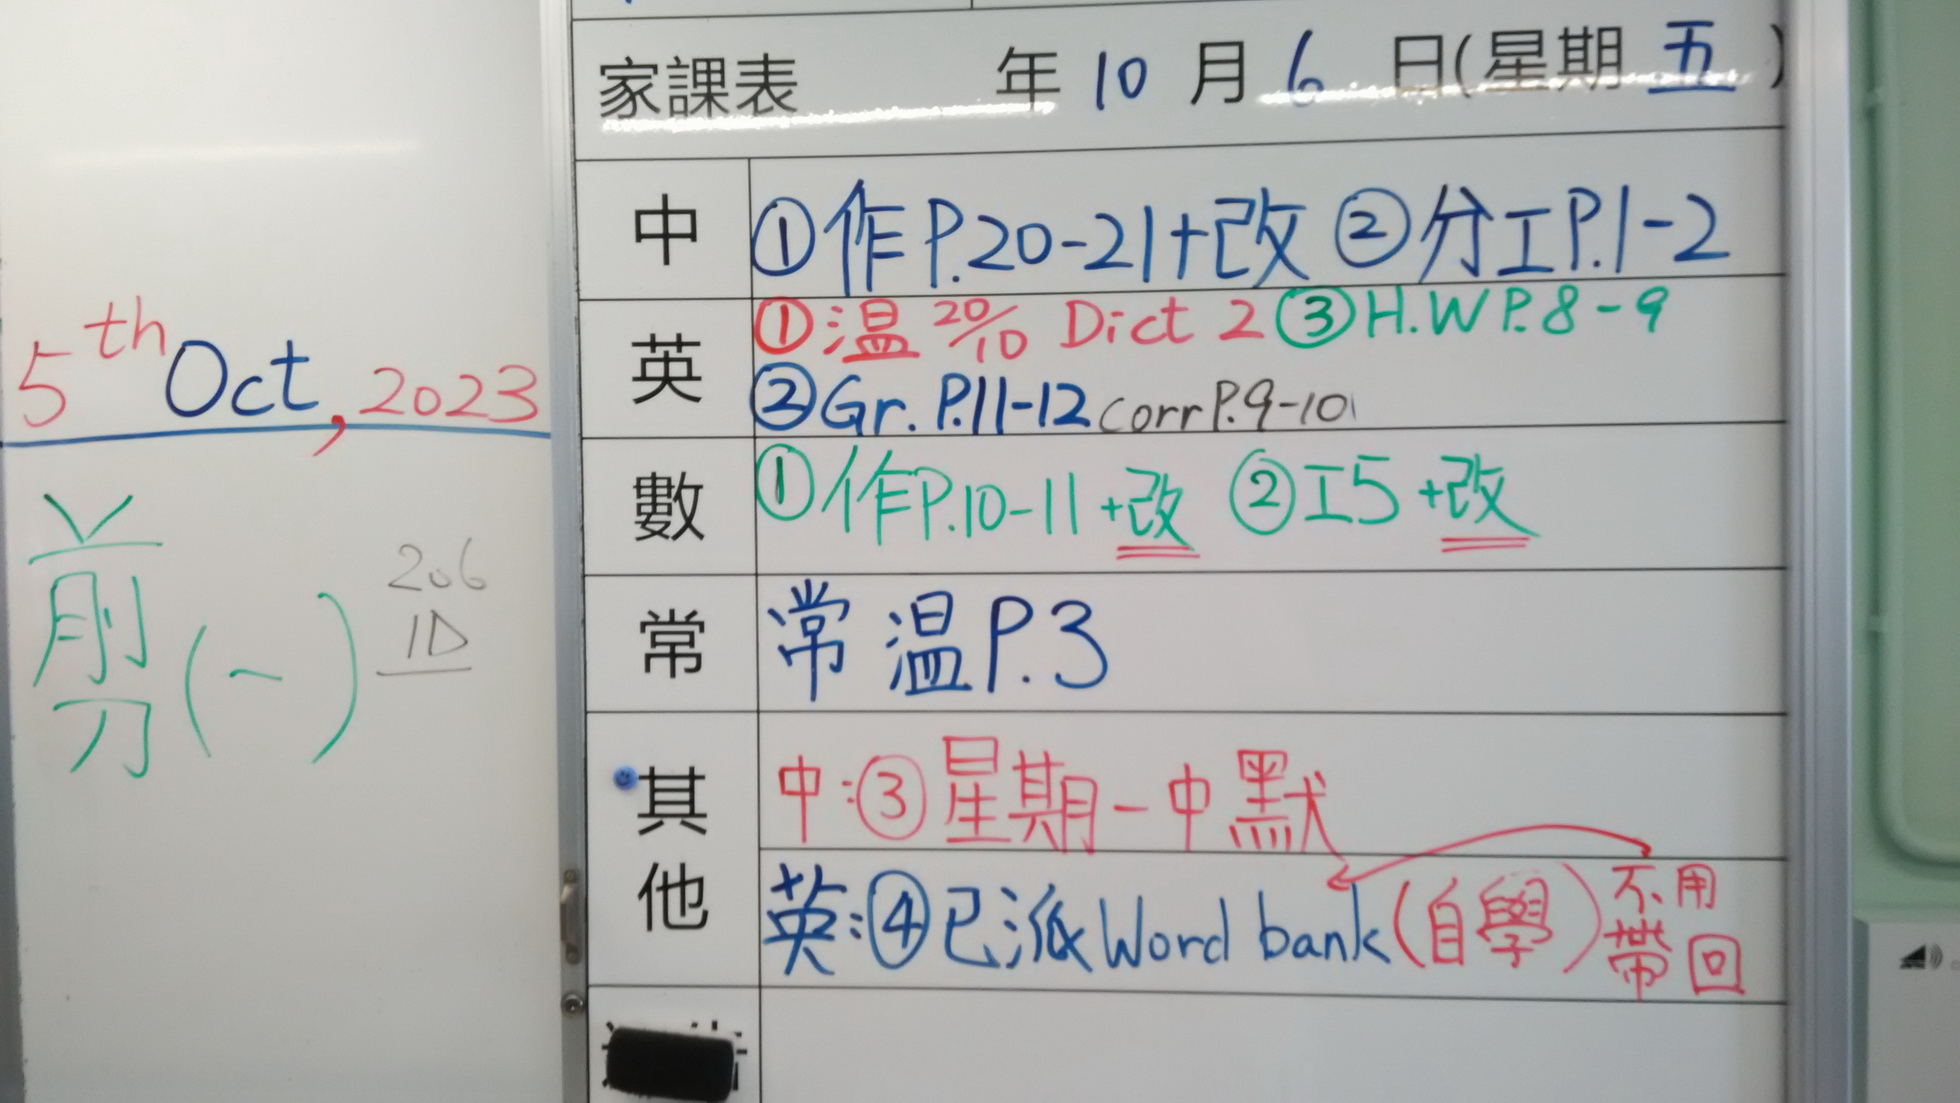 5th Oct, 2023
剪(一)
206
1D
家課表 年 10 月 6 日(星期 五 )
中 ①作P.20-21+改 ②分工P.1-2
英 ①温 20/10 Dict 2 ③H.W P.8-9
②Gr. P.11-12 corr P.9-10
數 ①作P.10-11+改 ②工5+改
常 常温P.3
其他
中:③星期一中默
英:④已派Word bank(自學)不用帶回